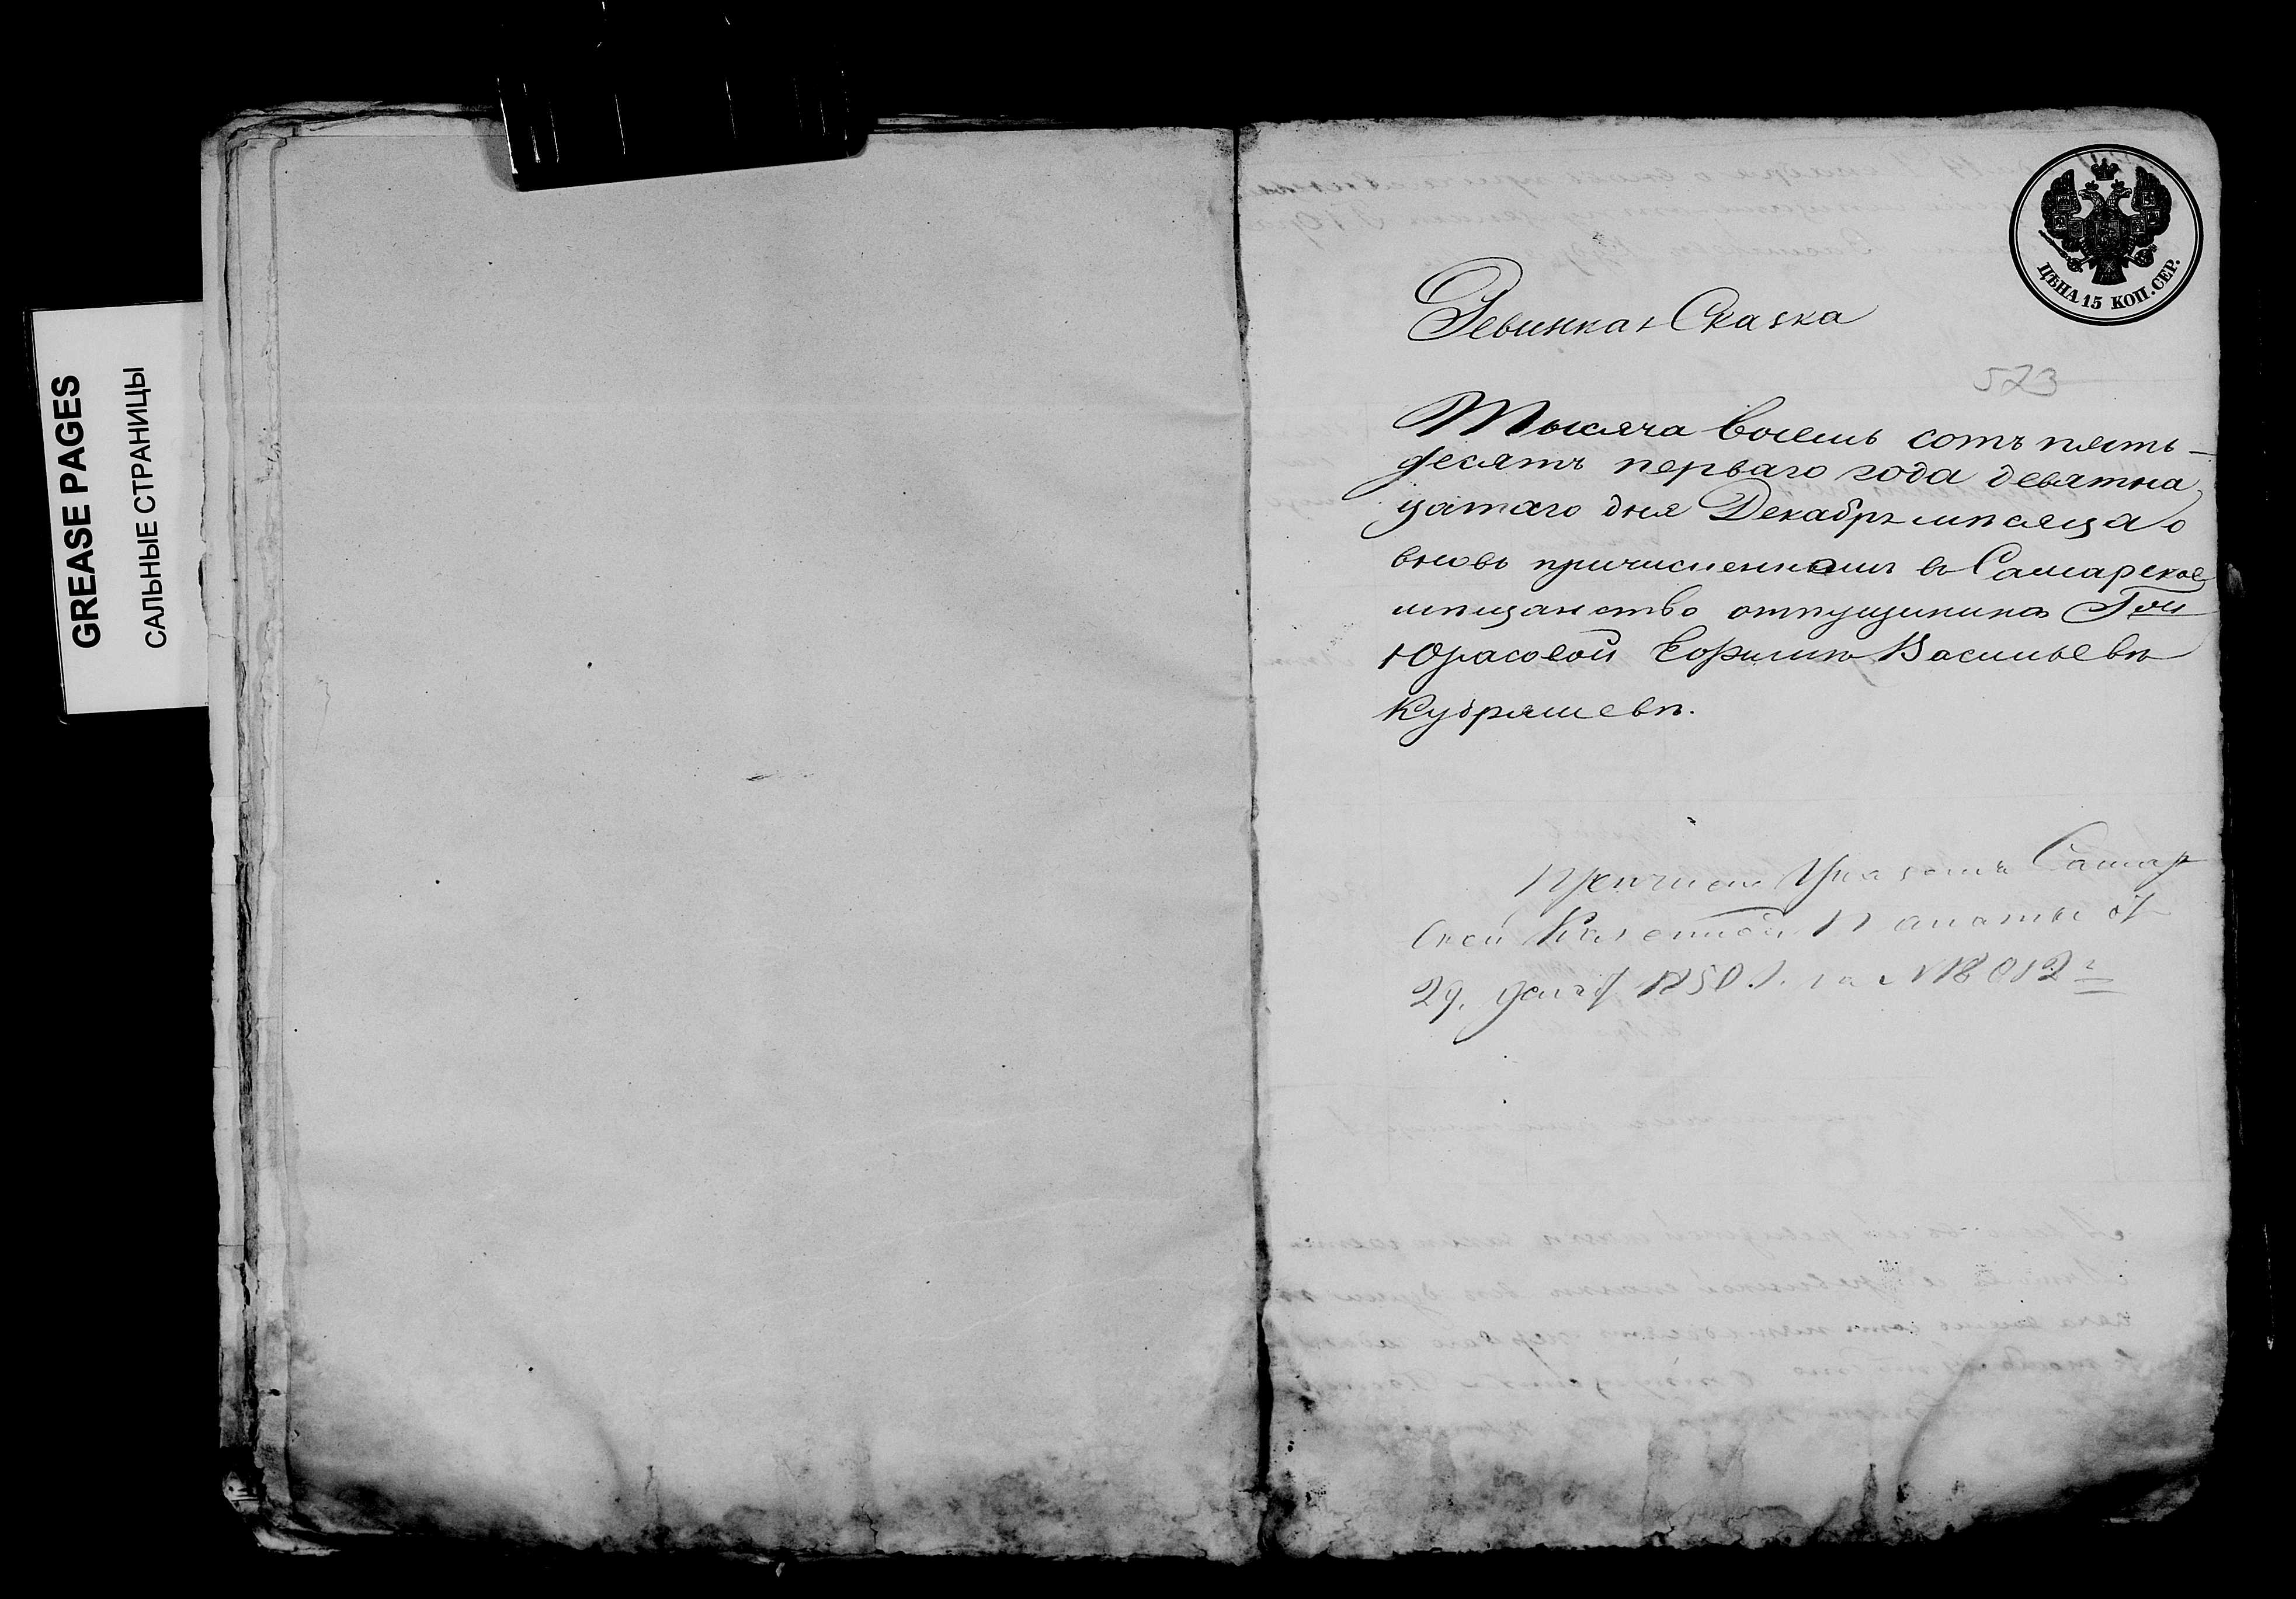 GREASE PAGES
САЛЬНЫЕ СТРАНИЦЫ
ЦѢНА 15 КОП. СЕР.
Ревижская Сказка
573
Тысяча восемь сотъ пять-
десятъ перваго года девятна
цатаго дня Декабря мѣсяца о
вновь причисленномъ въ Самарское
мѣщанство отпущинника Гжи
Юрасовой Ефимѣ Васильевѣ
Кудряшевѣ.
Указомъ Самар
ской Казенной Палаты от
29. 1850 г. за №18012